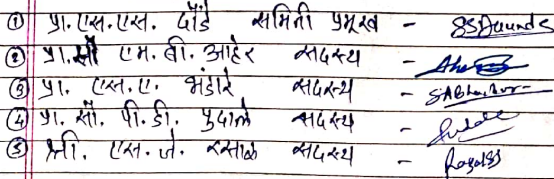 ① प्रा. एस. एस. दौंडे समिती प्रमुख - SSDaunde
② प्रा. सौ एम. बी. आहेर सदस्य -
③ प्रा. एस. ए. भंडारे सदस्य - SABhandare
④ प्रा. सौ. पी. डी. पुदाले सदस्य - Pudale
⑤ श्री. एस. जे. रसाळ सदस्य -